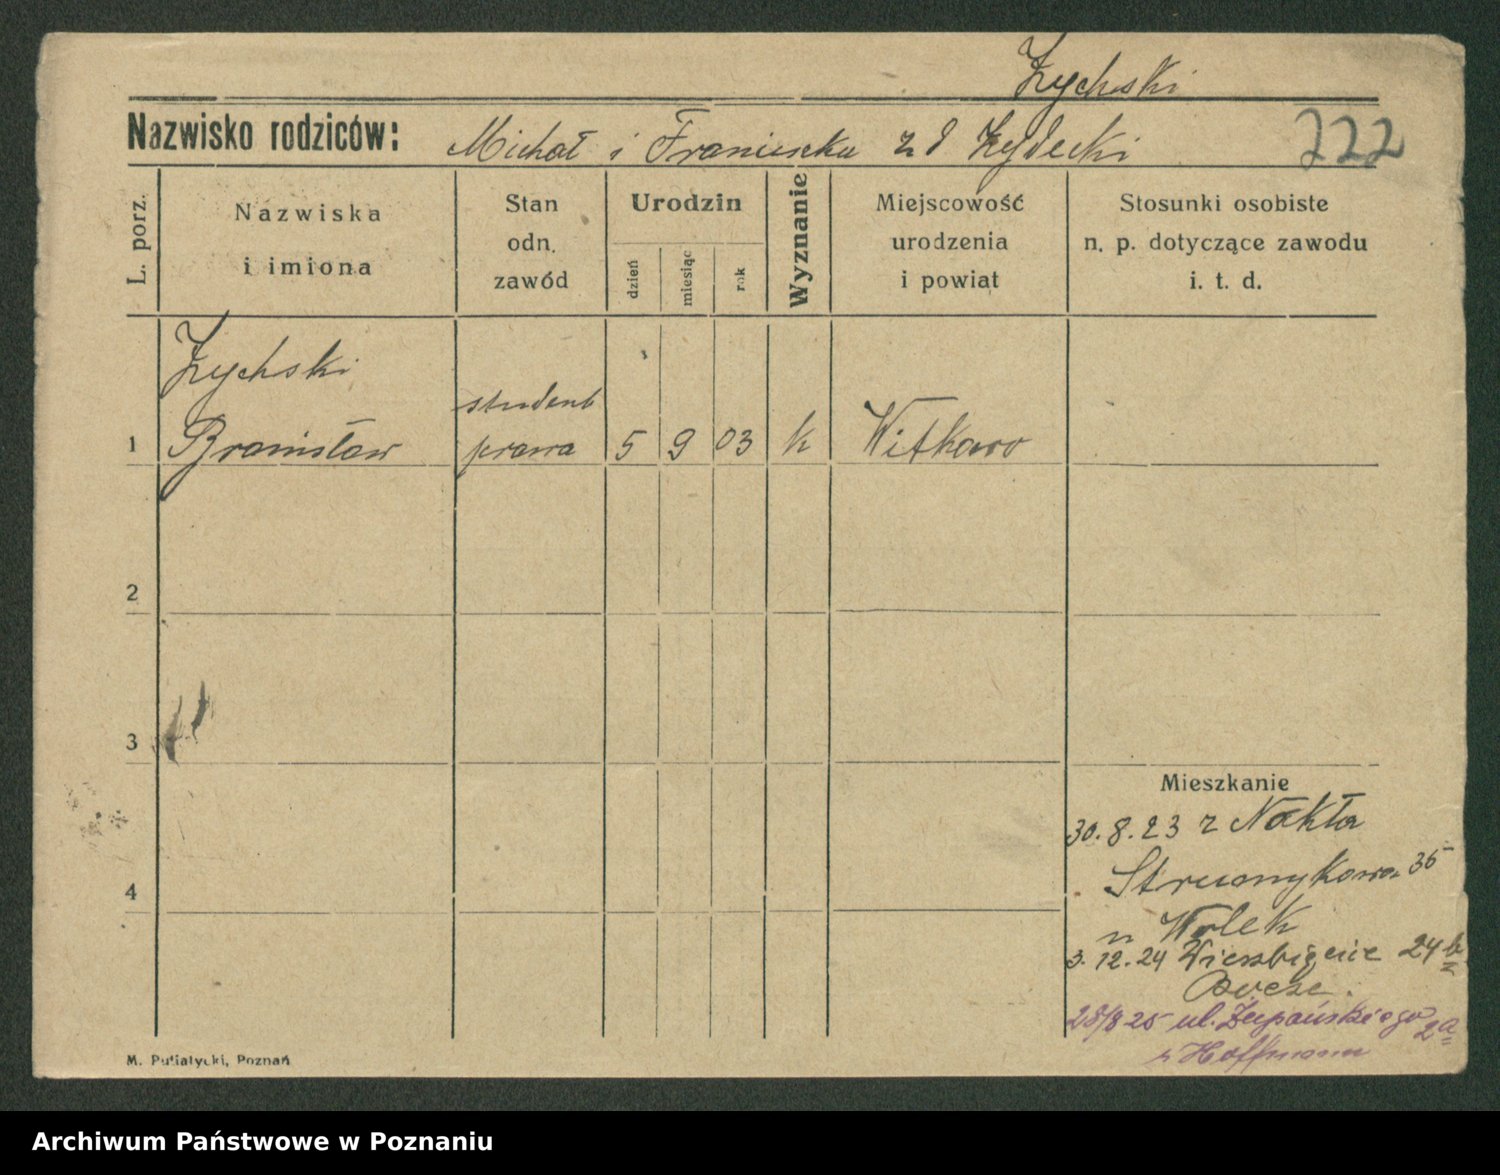 Zychski
Nazwisko rodziców: Michał i Franciszka z d Zydecki 222
L. porz.
Nazwiska
i imiona
Stan
odn.
zawód
Urodzin
dzień
miesiąc
rok
Wyznanie
Miejscowość
urodzenia
i powiat
Stosunki osobiste
n. p. dotyczące zawodu
i. t. d.
Zychski
student
1 Bronisław prawa 5 9 03 k Witkowo
2
3
Mieszkanie
30.8.23 z Nakła
Strumykowa 35
4
u Wolek
3.12.24 Wierzbięcie 24 b
28/8 25 ul. Żupańskiego 2a
Hoffmann
M. Putiatycki, Poznań
Archiwum Państwowe w Poznaniu